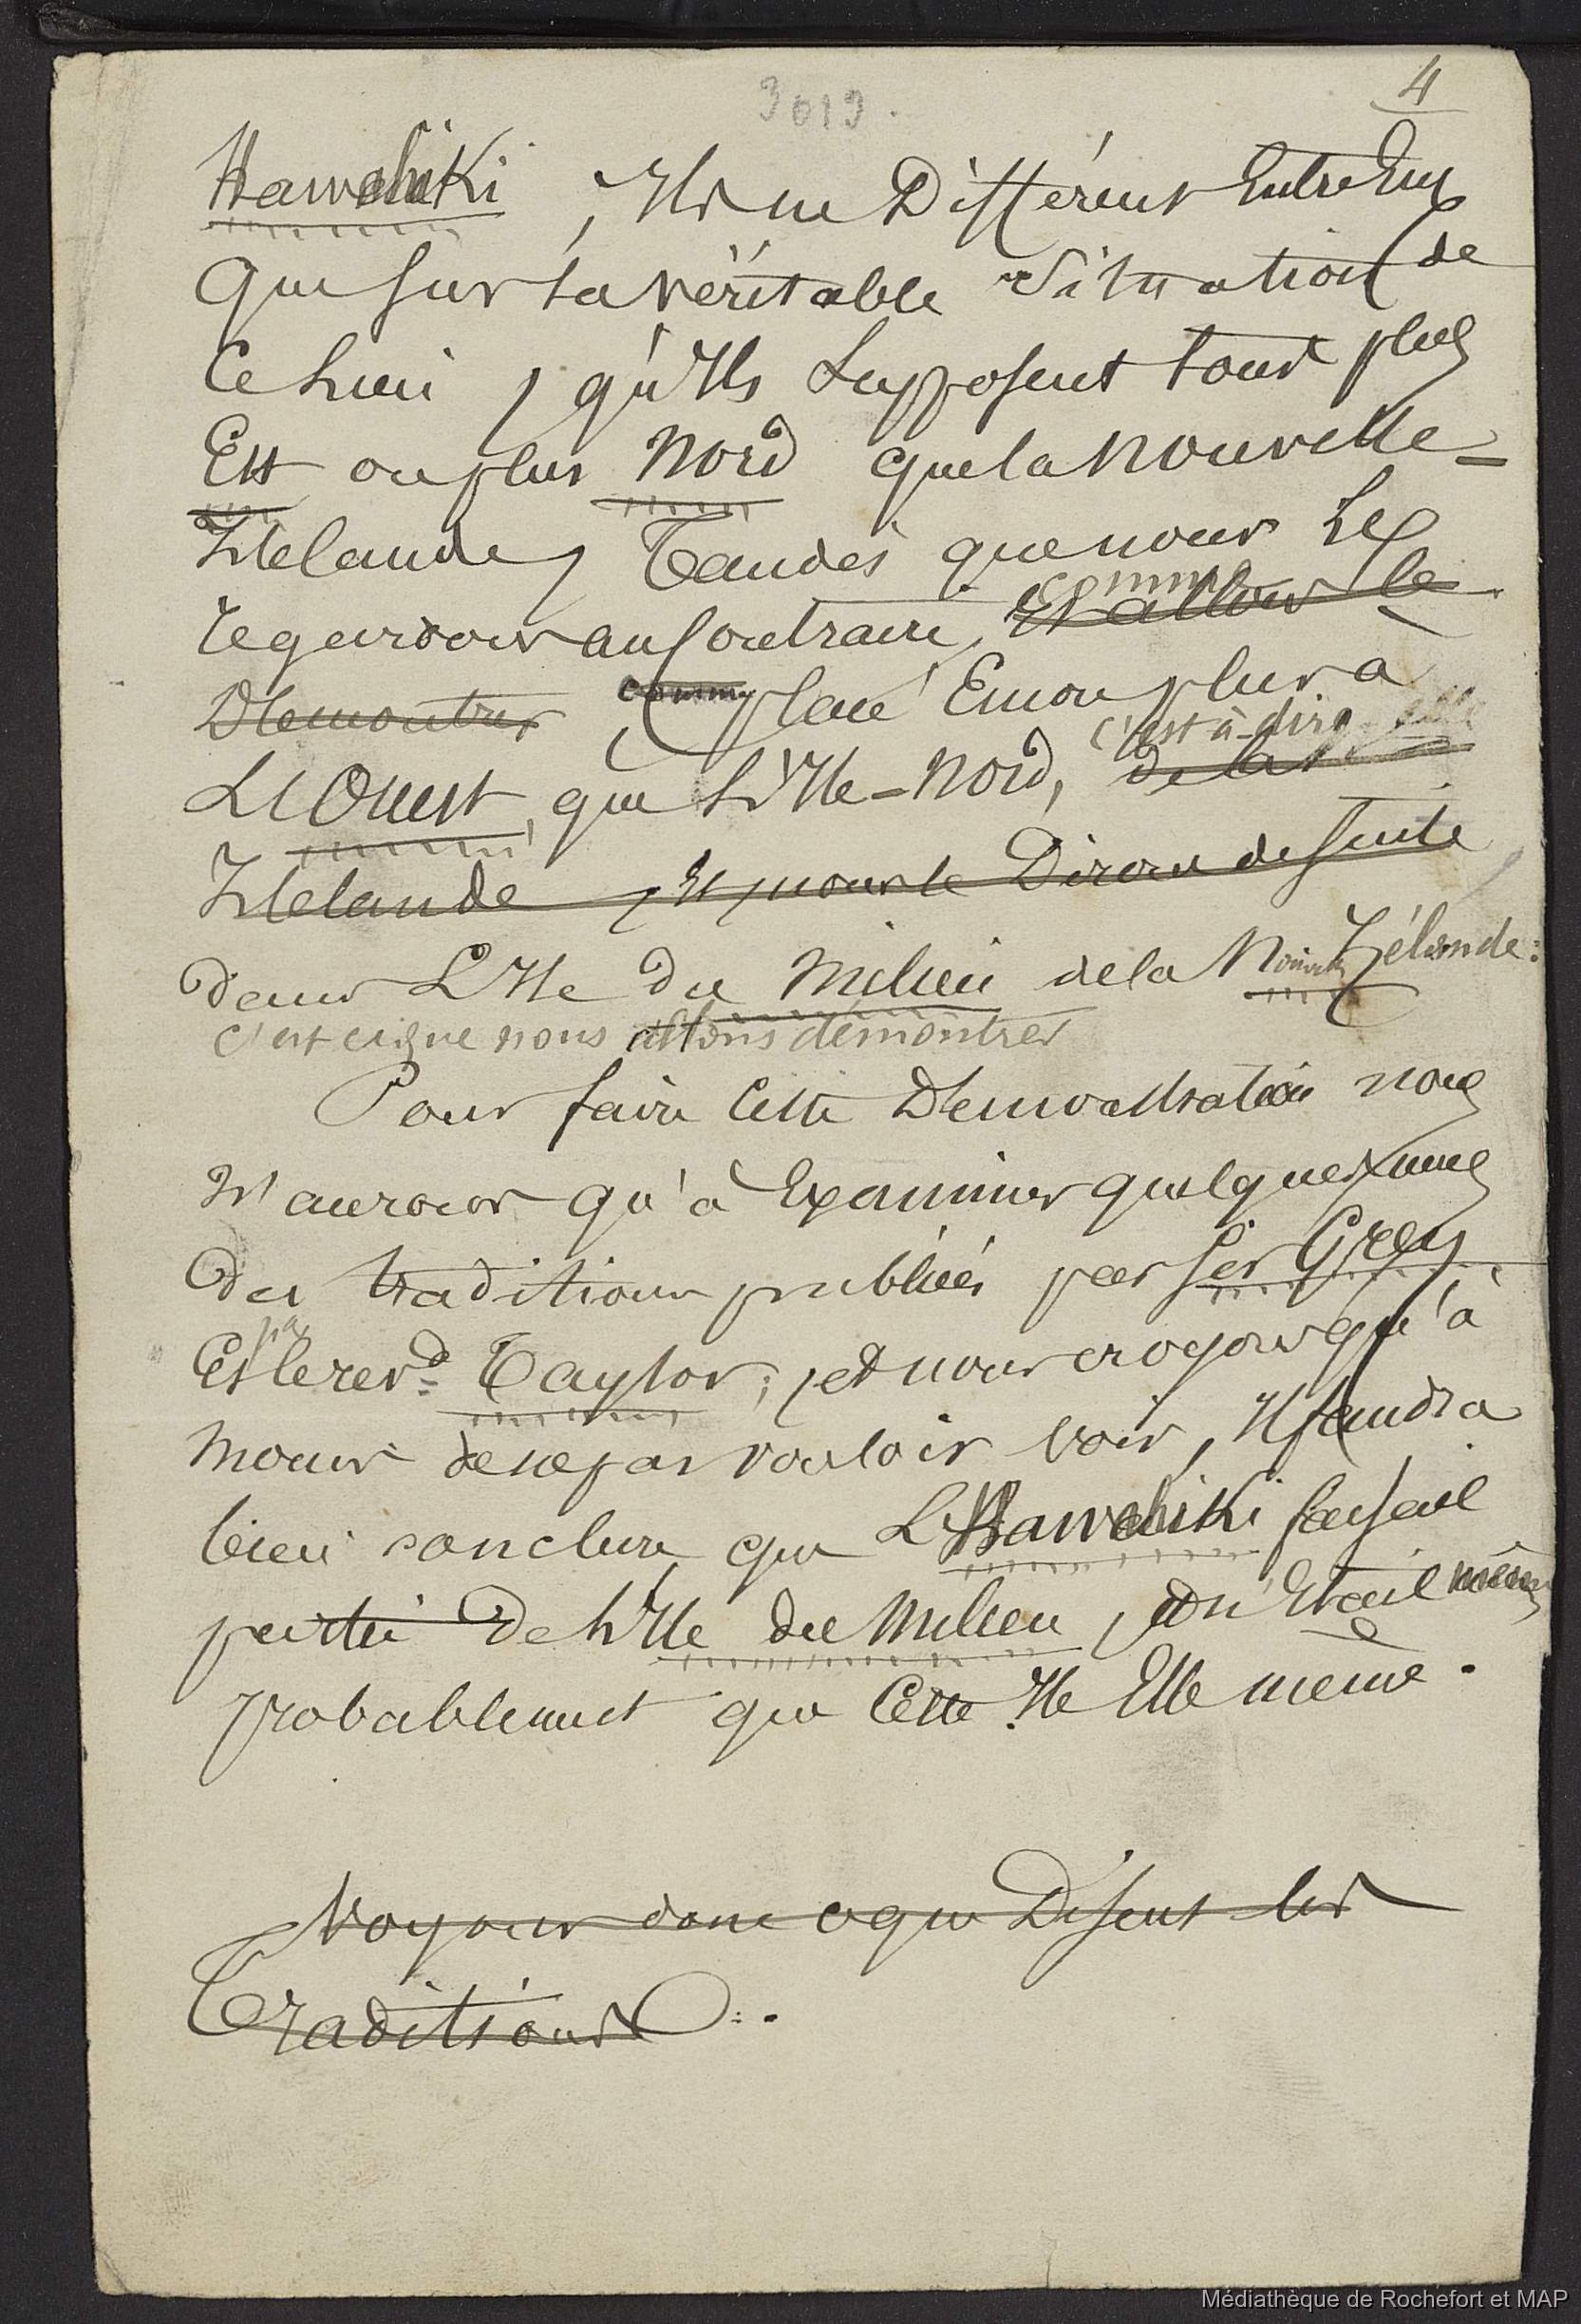 3019.
4
Hawahiki, Ils ne Différent Entre Eux
Que sur la véritable Situation de
Ce Lieu, qu'Ils Supposent tous plus
Est ou plus Nord que la Nouvelle-
Zélande, Tandis que nous Le
comme
regardons au Contraire, Et allons le
Démontrer, comme placé Encore plus à
c'est-à-dire
L'Ouest, que L'Ile-Nord, de la
Zélande, Et nous le Dirons de suite
dans L'Ile Du Milieu de la Nouvelle Zélande:
c'est ce que nous allons démontrer
Pour faire Cette Démonstration nous
N'aurons qu'à Examiner quelques unes
Des traditions publiées par Sir Grey
par
Et le rev.d Taylor; et nous croyons qu'à
moins de ne pas vouloir voir, Il faudra
bien conclure que L'Hawahiki faisait
partie De L'Ile du Milieu, ou n'Etait même
probablement que Cette Ile Elle même.
Voyons donc ce que Disent les
Traditions.
Médiathèque de Rochefort et MAP